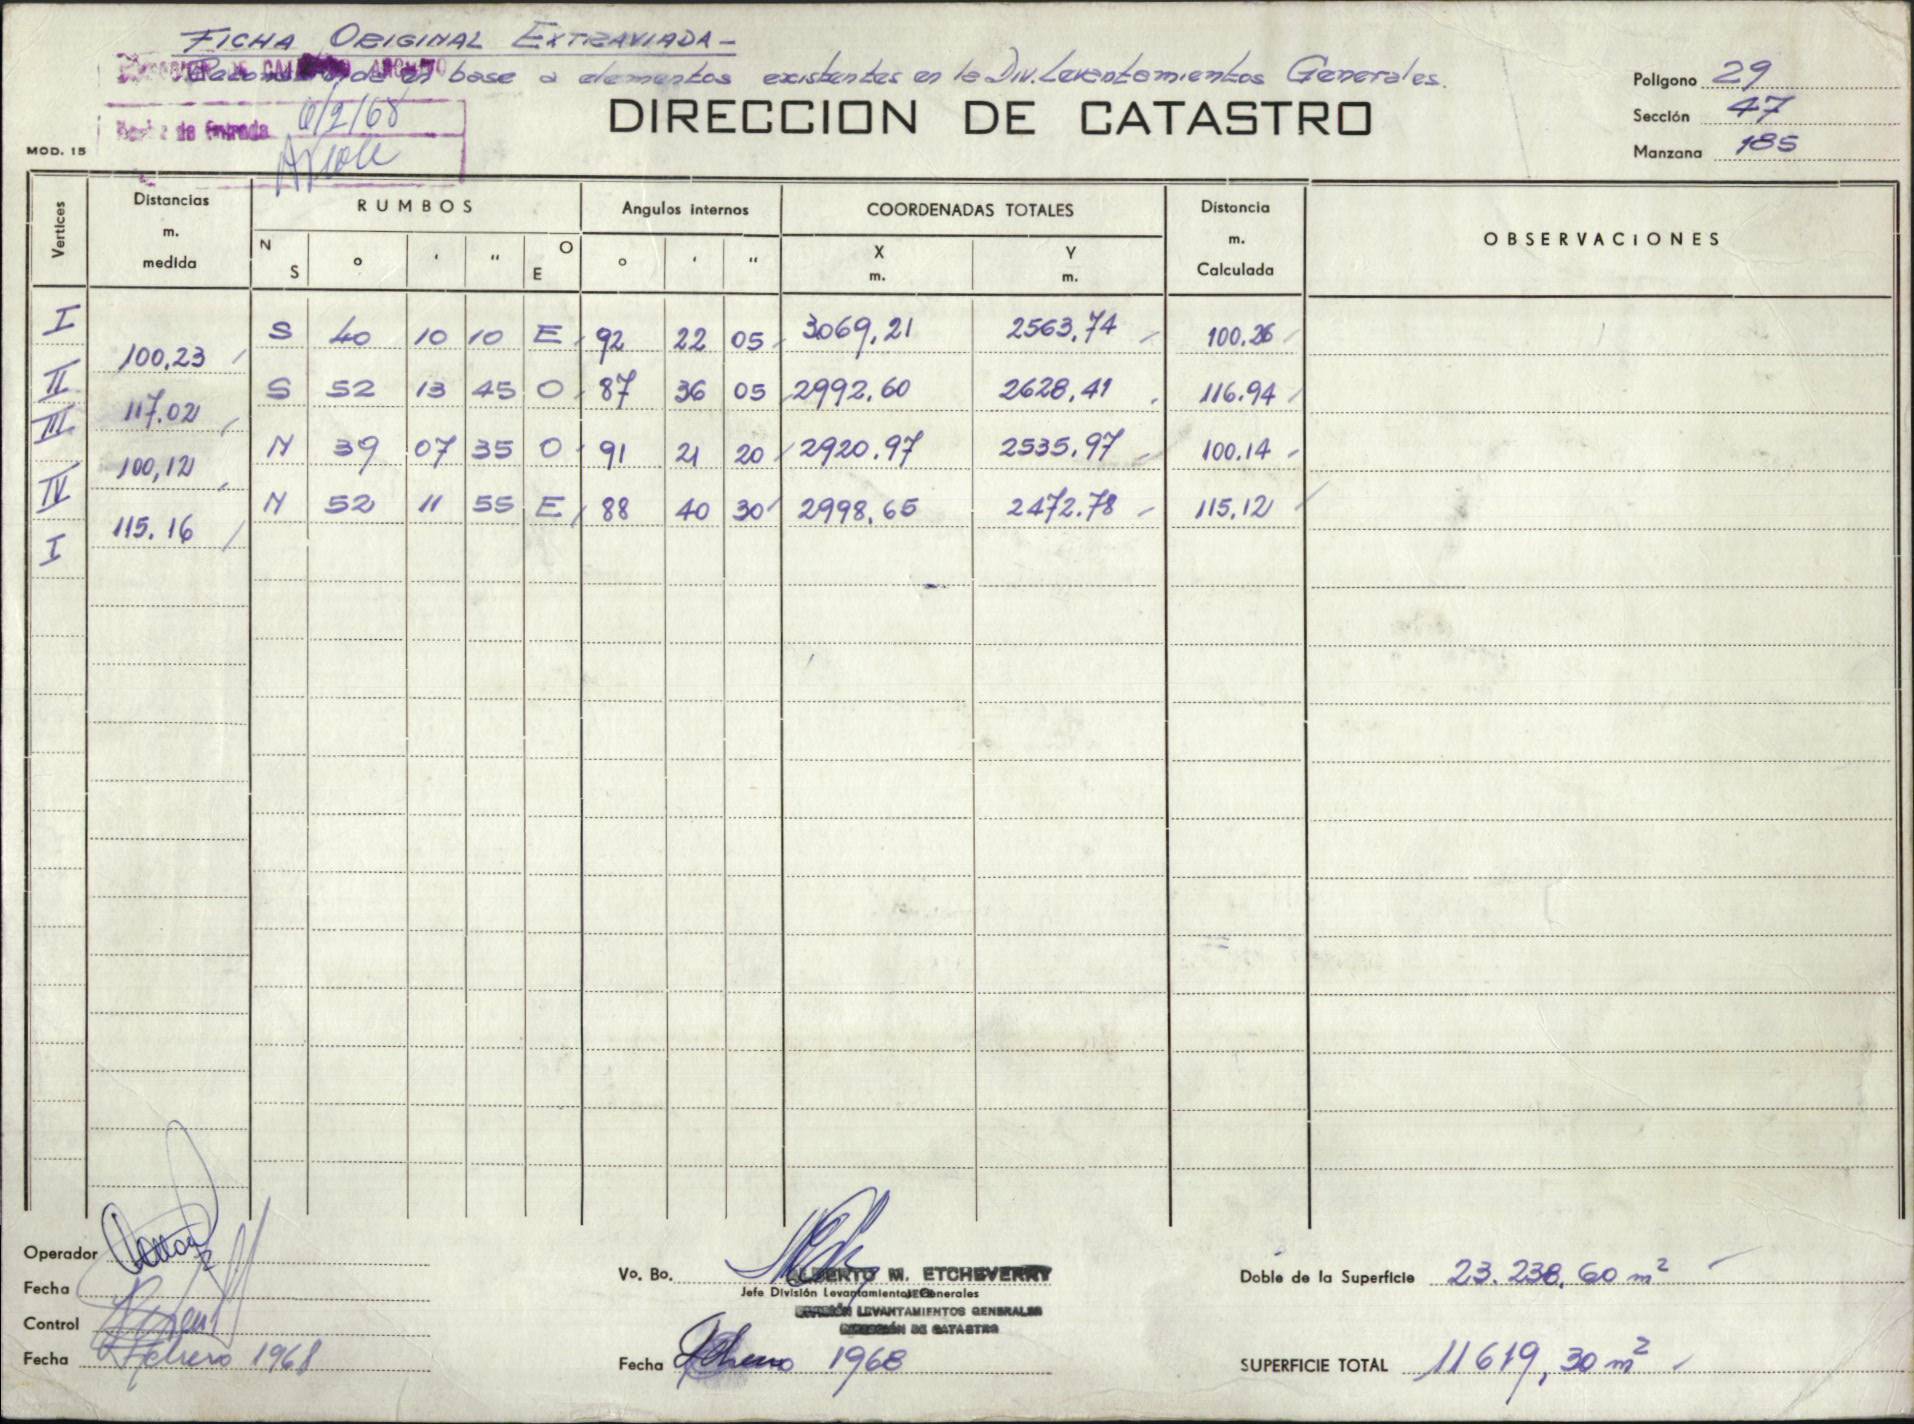 FICHA ORIGINAL EXTRAVIADA -
en base a elementos existentes en la Div. Levantamientos Generales.
DIRECCION DE CATASTRO
Fecha de Entrada 6/2/68
MOD. 15
Polígono 29
Sección 47
Manzana 185
Vertices Distancias m. medida RUMBOS Angulos internos COORDENADAS TOTALES Distancia m. Calculada OBSERVACIONES
N S o ' " O E o ' " X m. Y m.
I S 40 10 10 E 92 22 05 3069,21 2563,74 100.26
100,23
II S 52 13 45 O 87 36 05 2992,60 2628,41 116.94
117.02
III N 39 07 35 O 91 21 20 2920.97 2535,97 100.14
100,12
IV N 52 11 55 E 88 40 30 2998,65 2472.78 115,12
115.16
I
Operador
Fecha
Control
Fecha Febrero 1968
Vo. Bo.
ALBERTO M. ETCHEVERRY
Jefe División Levantamientos Generales
DIVISIÓN LEVANTAMIENTOS GENERALES
DIRECCIÓN DE CATASTRO
Fecha Febrero 1968
Doble de la Superficie 23.238,60 m²
SUPERFICIE TOTAL 11619,30 m²